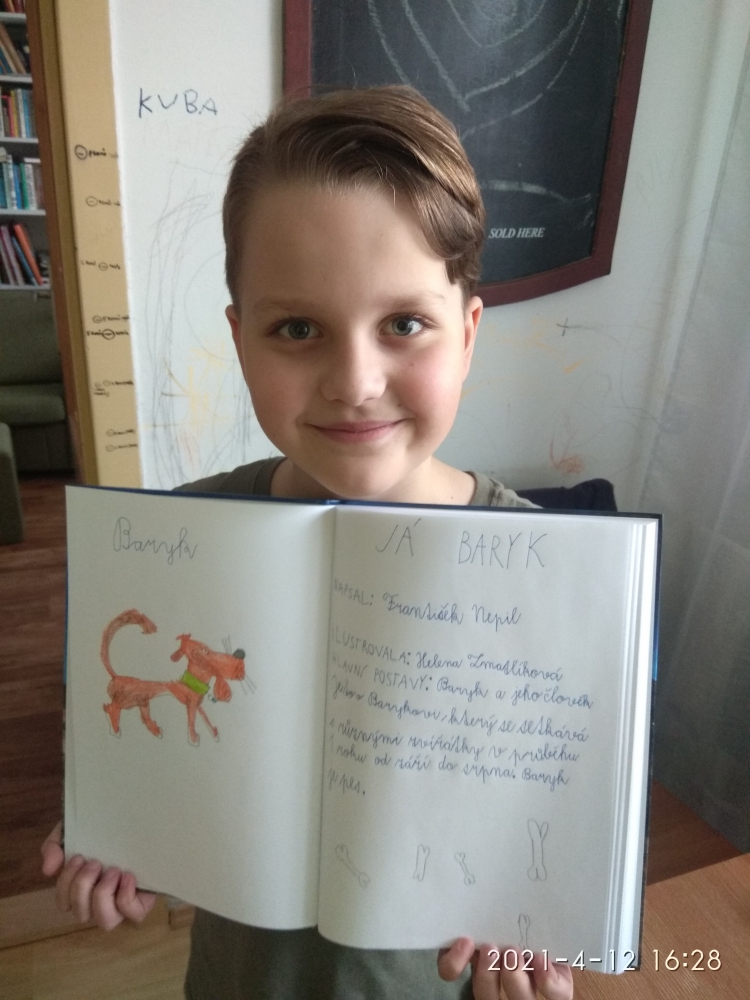 KUBA
SOLD HERE
Baryk
JÁ BARYK
NAPSAL: František Nepil
ILUSTROVALA: Helena Zmatlíková
HLAVNÍ POSTAVY: Baryk a jeho člověk
Barykovi, který se setkává
s různými zvířátky v průběhu
1 roku od září do srpna. Baryk
je pes.
2021-4-12 16:28